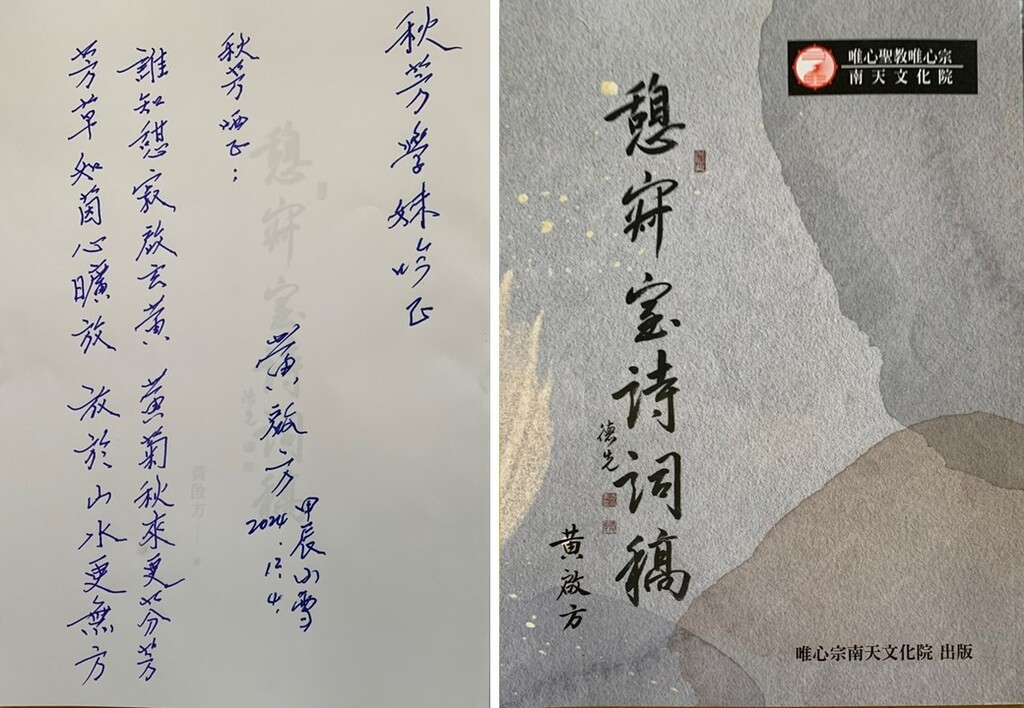 秋芳學妹吟正
黃啟方
甲辰小雪
2024.12.4.
秋芳哂正：
誰知憩寂啟玄黃 黃菊秋來更芬芳
芳草如茵心曠放 放於山水更無方
唯心聖教唯心宗
南天文化院
憩寂室詩詞稿
德先
黃啟方
唯心宗南天文化院 出版